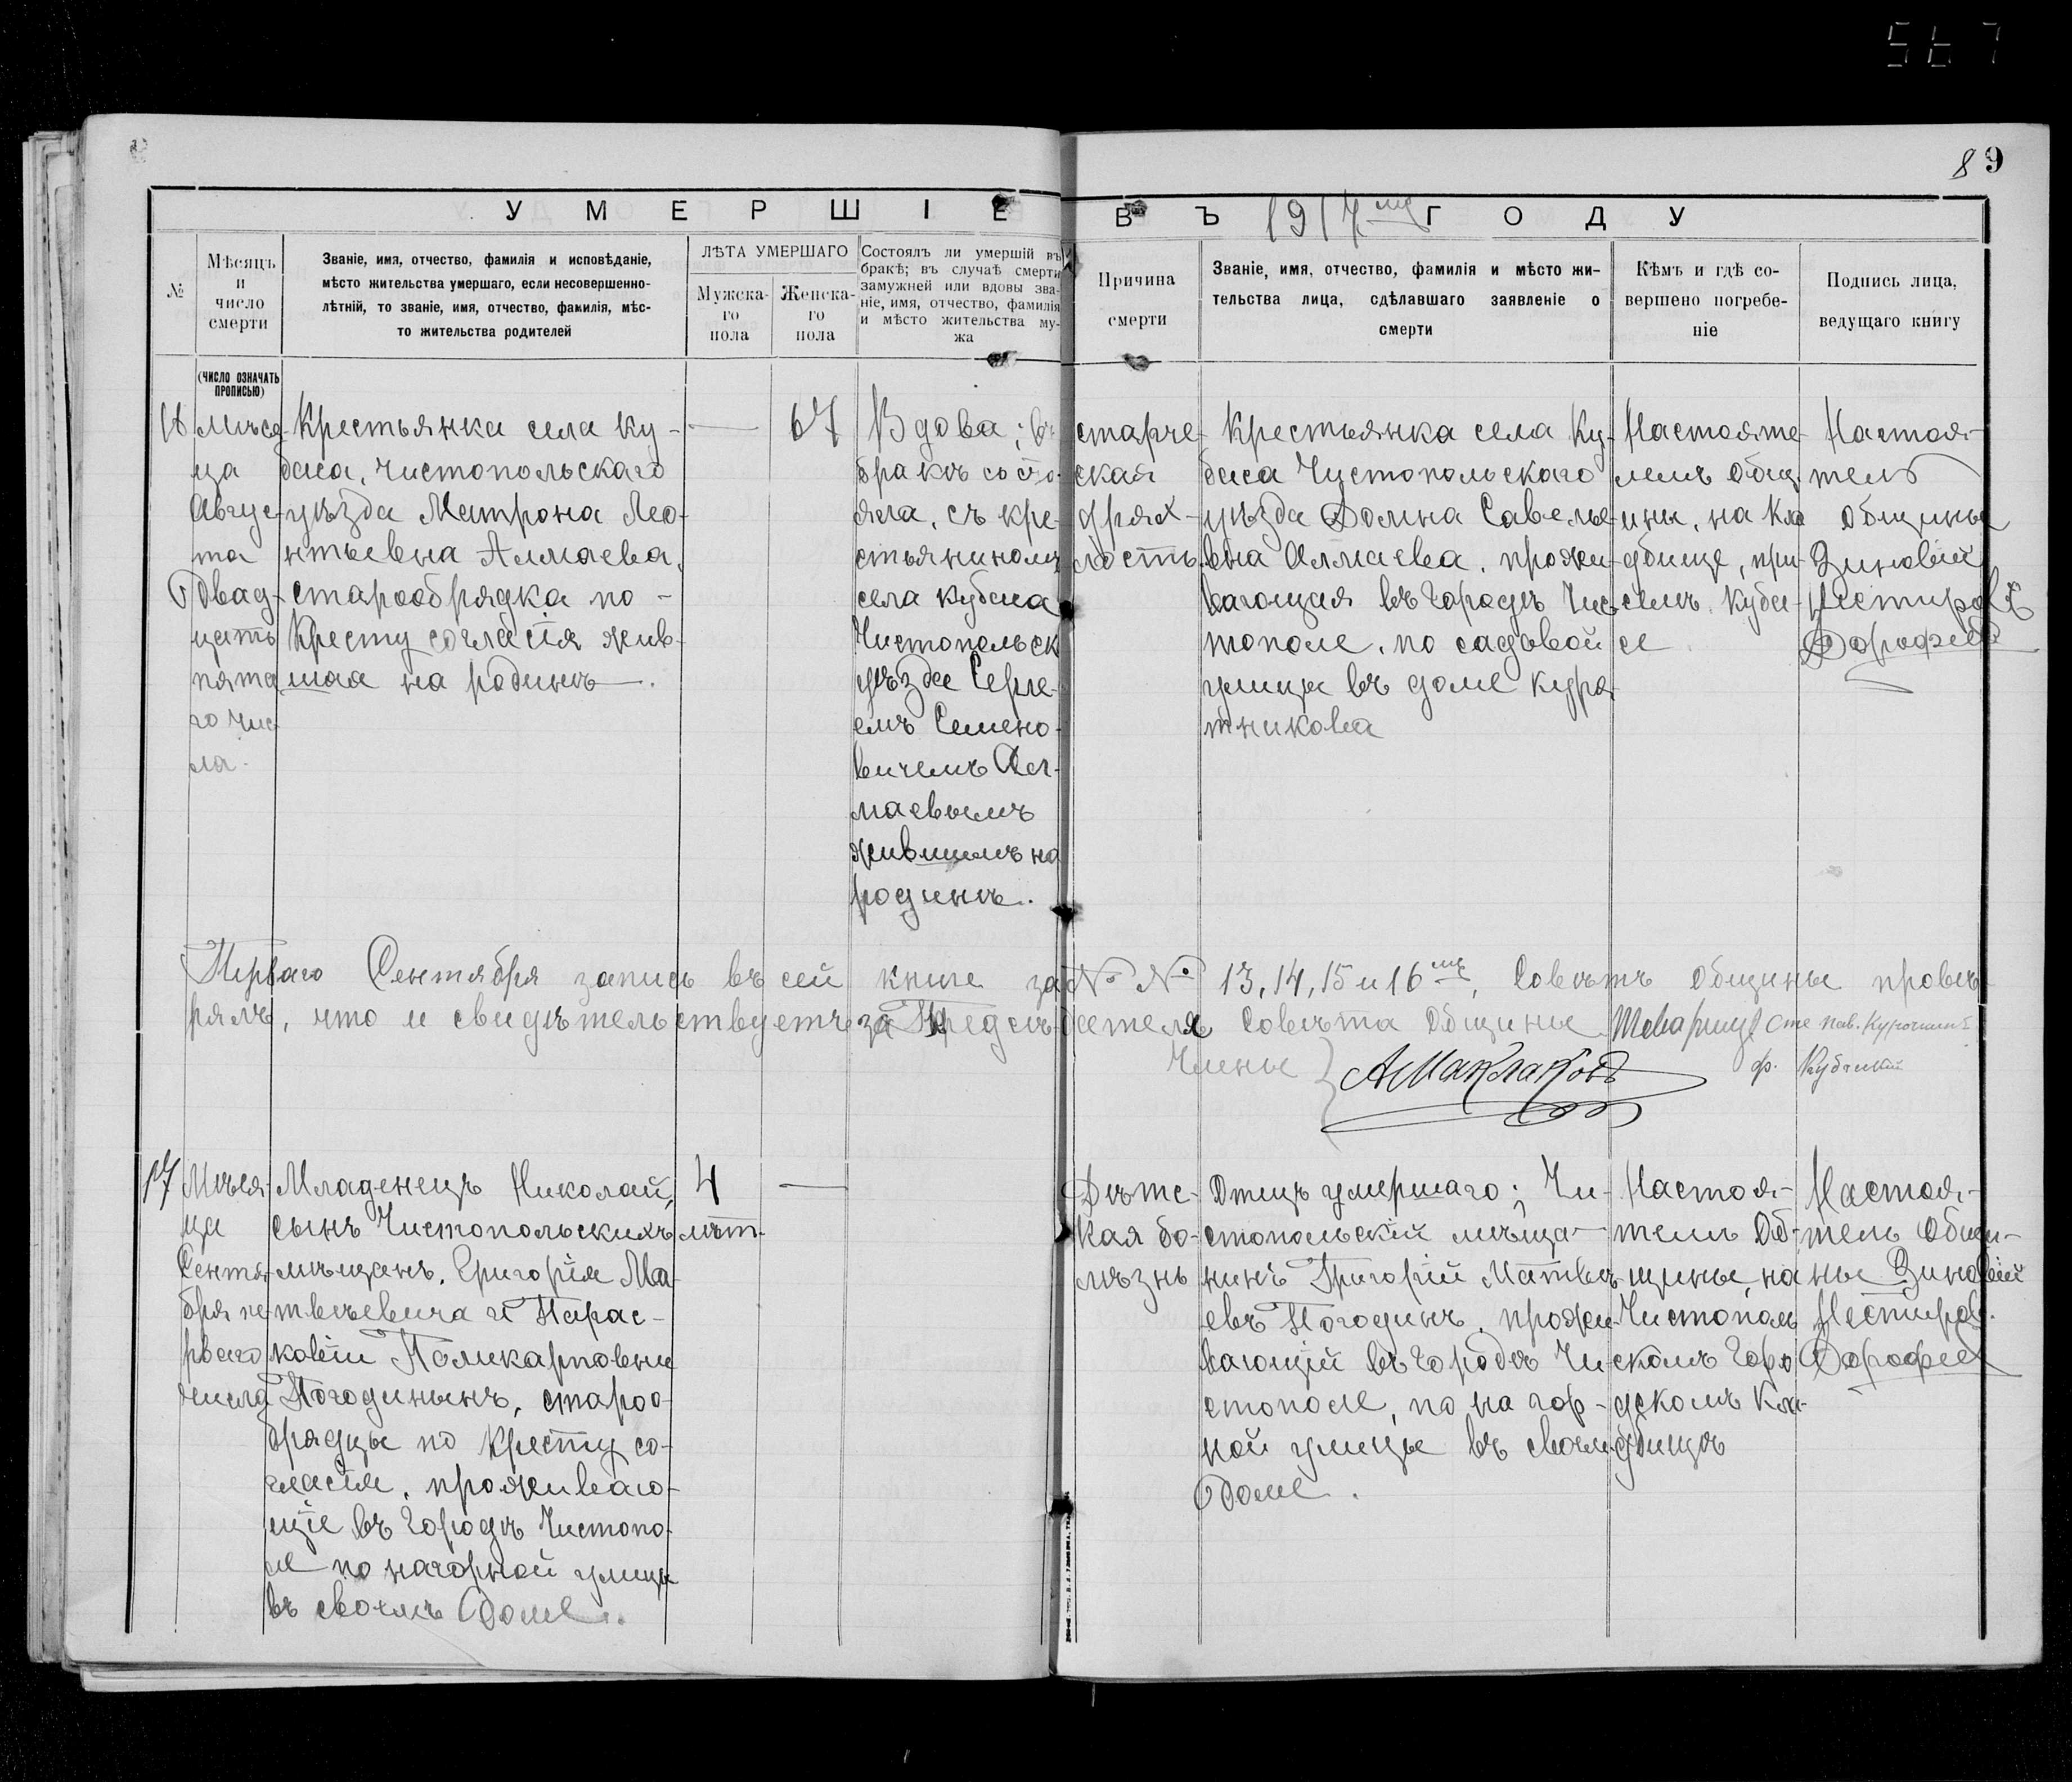 567
89
УМЕРШІЕ ВЪ 1917мъ ГОДУ
№
Мѣсяцъ
и
число
смерти
Званіе, имя, отчество, фамилія и исповѣданіе,
мѣсто жительства умершаго, если несовершенно-
лѣтній, то званіе, имя, отчество, фамилія, мѣс-
то жительства родителей
ЛѢТА УМЕРШАГО
Мужска-
го
пола
Женска-
го
пола
Состоялъ ли умершій въ
бракѣ; въ случаѣ смерти
замужней или вдовы зва-
ніе, имя, отчество, фамилія
и мѣсто жительства му-
жа
Причина
смерти
Званіе, имя, отчество, фамилія и мѣсто жи-
тельства лица, сдѣлавшаго заявленіе о
смерти
Кѣмъ и гдѣ со-
вершено погребе-
ніе
Подпись лица,
ведущаго книгу
(ЧИСЛО ОЗНАЧАТЬ
ПРОПИСЬЮ)
16
Мѣся-
ца
Авгус-
та
Двад-
цать
пята
го чис-
ла.
Крестьянка села Ку-
баса, Чистопольскаго
уѣзда Матрона Лео-
нтьевна Алмаева,
старообрядка по-
Кресту согласія жив-
шая на родинѣ.
—
67
Вдова; въ
бракѣ состо-
яла, съ кре-
стьяниномъ
села Кубаса
Чистопольск
уѣзда Серге-
емъ Семено-
вичемъ Ал-
маевымъ
жившимъ на
родинѣ.
старче-
ская
дрях-
лость.
Крестьянка села Ку-
баса Чистопольскаго
уѣзда Домна Савелье-
вна Алмаева, прожи-
вающая въ городѣ Чис-
тополе, по садовой
улицы въ доме Кура
тникова
Настояте-
лемъ общ-
ины, на Кла
дбище, при
селѣ Куба-
се
Настоя-
тель
общины
Зиновій
Нестировъ
Дорофеев
Перваго Сентября запись въ сей книге за №№ 13, 14, 15 и 16мъ, Совѣтъ Общины провѣ-
рялъ, что и свидѣтельствуетъ за Предсѣдателя Совѣта Общины Товарищ Сте Пав. Курочкинъ
Члены АМаклаковъ
17
Мѣся-
ца
Сентя-
бря пе-
рваго
числа
Младенецъ Николай,
сынъ Чистопольскихъ
мѣщанъ, Григорія Ма-
твѣевича и Парас-
ковіи Поликарповны
Погодинынъ, староо-
брядцы по Кресту со-
гласія, проживаю-
щіе въ Городѣ Чистопо-
ле по нагорной улицы
въ своемъ доме.
4
лѣт.
—
Дѣтс-
кая бо-
лѣзнь
Отецъ умершаго; Чи-
стопольскій мѣща-
нинъ Григорій Матвѣ-
евъ Погодинъ, прожи-
вающій въ городѣ Чи-
стополе, по на гор-
ной улицы въ своем
доме.
Настоя-
телемъ Об-
щины, на
Чистополь
скомъ Горо
дскомъ Кла-
дбищѣ
Настоя-
тель Общи-
ны Зиновій
Нестиров.
Дорофеев